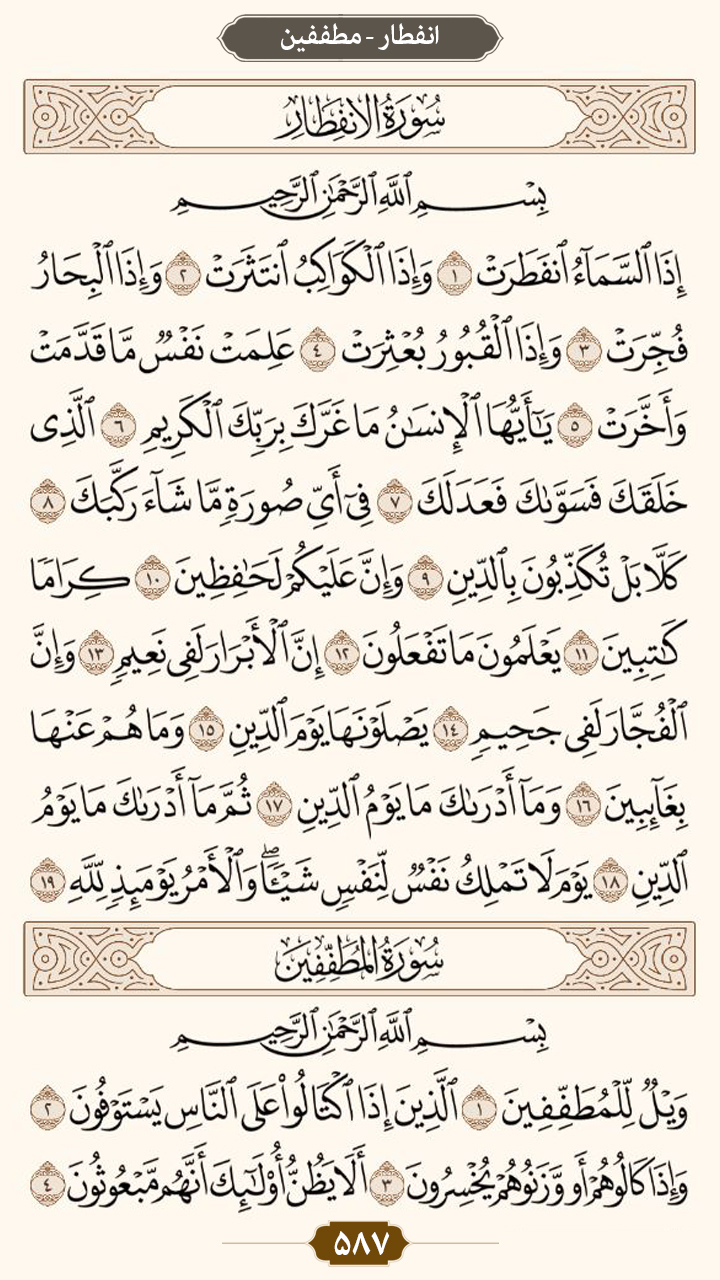 انفطار - مطففين
سُورَةُ الانفِطَارِ
بِسْمِ ٱللَّهِ ٱلرَّحْمَٰنِ ٱلرَّحِيمِ
إِذَا ٱلسَّمَآءُ ٱنفَطَرَتْ ١ وَإِذَا ٱلْكَوَاكِبُ ٱنتَثَرَتْ ٢ وَإِذَا ٱلْبِحَارُ
فُجِّرَتْ ٣ وَإِذَا ٱلْقُبُورُ بُعْثِرَتْ ٤ عَلِمَتْ نَفْسٌ مَّا قَدَّمَتْ
وَأَخَّرَتْ ٥ يَـٰٓأَيُّهَا ٱلْإِنسَـٰنُ مَا غَرَّكَ بِرَبِّكَ ٱلْكَرِيمِ ٦ ٱلَّذِى
خَلَقَكَ فَسَوَّىٰكَ فَعَدَلَكَ ٧ فِىٓ أَىِّ صُورَةٍ مَّا شَآءَ رَكَّبَكَ ٨
كَلَّا بَلْ تُكَذِّبُونَ بِٱلدِّينِ ٩ وَإِنَّ عَلَيْكُمْ لَحَـٰفِظِينَ ١٠ كِرَامًا
كَـٰتِبِينَ ١١ يَعْلَمُونَ مَا تَفْعَلُونَ ١٢ إِنَّ ٱلْأَبْرَارَ لَفِى نَعِيمٍ ١٣ وَإِنَّ
ٱلْفُجَّارَ لَفِى جَحِيمٍ ١٤ يَصْلَوْنَهَا يَوْمَ ٱلدِّينِ ١٥ وَمَا هُمْ عَنْهَا
بِغَآئِبِينَ ١٦ وَمَآ أَدْرَىٰكَ مَا يَوْمُ ٱلدِّينِ ١٧ ثُمَّ مَآ أَدْرَىٰكَ مَا يَوْمُ
ٱلدِّينِ ١٨ يَوْمَ لَا تَمْلِكُ نَفْسٌ لِّنَفْسٍ شَيْـًٔا ۖ وَٱلْأَمْرُ يَوْمَئِذٍ لِّلَّهِ ١٩
سُورَةُ المُطَفِّفِينَ
بِسْمِ ٱللَّهِ ٱلرَّحْمَٰنِ ٱلرَّحِيمِ
وَيْلٌ لِّلْمُطَفِّفِينَ ١ ٱلَّذِينَ إِذَا ٱكْتَالُوا۟ عَلَى ٱلنَّاسِ يَسْتَوْفُونَ ٢
وَإِذَا كَالُوهُمْ أَو وَّزَنُوهُمْ يُخْسِرُونَ ٣ أَلَا يَظُنُّ أُو۟لَـٰٓئِكَ أَنَّهُم مَّبْعُوثُونَ ٤
۵۸۷